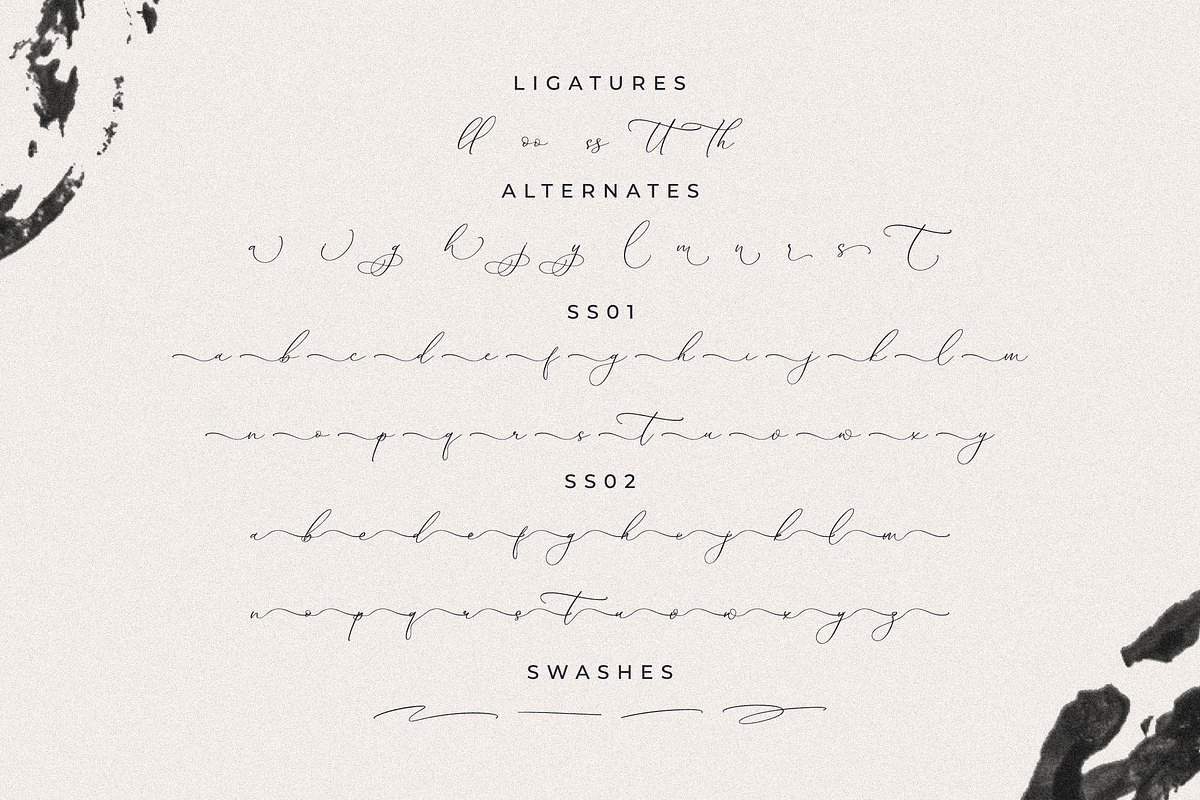 LIGATURES
ll oo ss tt th
ALTERNATES
a v g h j y l m n r s t
SS01
a b c d e f g h i j k l m
n o p q r s t u o w x y
SS02
a b c d e f g h e j k l m
n o p q r s t u o w x y z
SWASHES